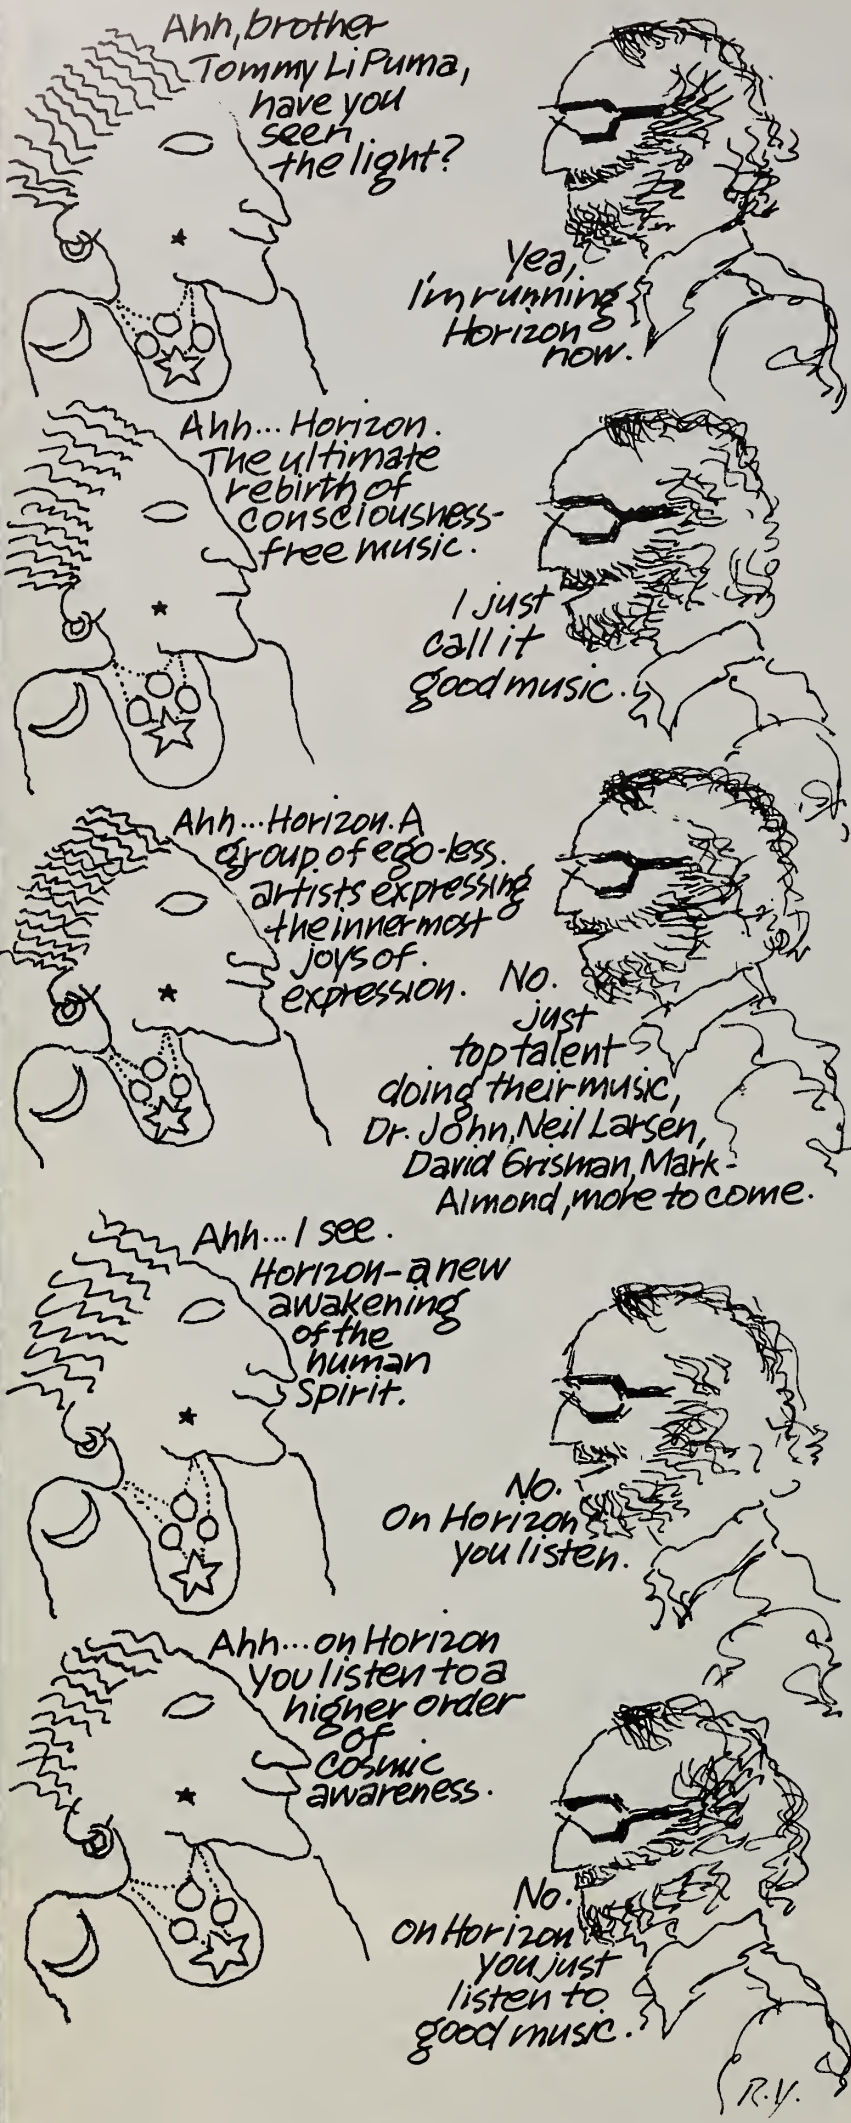 Ahh, brother
Tommy LiPuma,
have you
seen
the light?
Yea,
I'm running
Horizon
now.
Ahh... Horizon.
The ultimate
rebirth of
consciousness-
free music.
I just
call it
good music.
Ahh... Horizon. A
group of ego-less
artists expressing
the innermost
joys of
expression.
No.
just
top talent
doing their music,
Dr. John, Neil Larsen,
David Grisman, Mark-
Almond, more to come.
Ahh... I see.
Horizon-a new
awakening
of the
human
Spirit.
No.
On Horizon
you listen.
Ahh... on Horizon
you listen to a
higher order
of
cosmic
awareness.
No.
on Horizon
you just
listen to
good music.
R.Y.